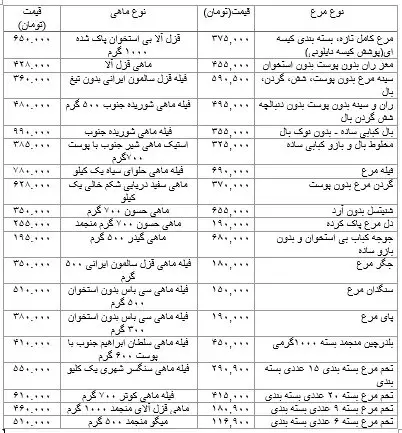 نوع مرغ قیمت(تومان) نوع ماهی قیمت (تومان)
مرغ کامل تازه، بسته بندی کیسه ای(پوشش کیسه نایلونی) ۳۷۵,۰۰۰ قزل آلا بی استخوان پاک شده ۱۰۰۰ گرم ۶۵۰,۰۰۰
مغز ران بدون پوست بدون استخوان ۴۵۵,۰۰۰ ماهی قزل آلا ۴۲۸,۰۰۰
سینه مرغ بدون پوست، شش، گردن، بال ۵۹۰,۵۰۰ فیله قزل سالمون ایرانی بدون تیغ ۳۶۰,۰۰۰
ران و سینه بدون پوست بدون دنبالچه شش گردن بال ۴۹۵,۰۰۰ فیله ماهی شوریده جنوب ۵۰۰ گرم ۴۸۰,۰۰۰
بال کبابی ساده - بدون نوک بال ۳۵۵,۰۰۰ فیله ماهی شوریده جنوب ۹۹۰,۰۰۰
مخلوط بال و بازو کبابی ساده ۳۲۵,۰۰۰ استیک ماهی شیر جنوب با پوست ۷۰۰گرم ۳۸۵,۰۰۰
فیله مرغ ۶۹۰,۰۰۰ فیله ماهی حلوای سیاه یک کیلو ۷۸۰,۰۰۰
گردن مرغ بدون پوست ۳۷۰,۰۰۰ ماهی سفید دریایی شکم خالی یک کیلو ۶۲۸,۰۰۰
شنیتسل بدون آرد ۶۵۵,۰۰۰ ماهی حسون ۷۰۰ گرم ۳۵۰,۰۰۰
دل مرغ پاک کرده ۱۹۰,۰۰۰ ماهی حسون ۷۰۰ گرم منجمد ۲۵۵,۰۰۰
جوجه کباب بی استخوان و بدون بازو ساده ۶۸۰,۰۰۰ ماهی گیدر ۵۰۰ گرم ۱۹۵,۰۰۰
جگر مرغ ۱۸۰,۰۰۰ فیله ماهی قزل سالمون ایرانی ۵۰۰ گرم ۳۵۰,۰۰۰
سنگدان مرغ ۱۵۰,۰۰۰ فیله ماهی سی باس بدون استخوان ۵۰۰ گرم ۵۱۰,۰۰۰
پای مرغ ۱۹۰,۰۰۰ فیله ماهی سی باس بدون استخوان ۳۰۰ گرم ۳۸۰,۰۰۰
بلدرچین منجمد بسته ۱۰۰۰گرمی ۴۵۰,۰۰۰ فیله ماهی سلطان ابراهیم جنوب با پوست ۶۰۰ گرم ۴۱۰,۰۰۰
تخم مرغ بسته بندی ۱۵ عددی بسته بندی ۲۹۰,۹۰۰ فیله ماهی سنگسر شهری یک کلیو ۵۵۰,۰۰۰
تخم مرغ بسته ۲۰ عددی بسته بندی ۴۱۵,۰۰۰ فیله ماهی کوتر ۷۰۰ گرم ۶۱۰,۰۰۰
تخم مرغ بسته ۹ عددی بسته بندی ۱۸۰,۹۰۰ ماهی قزل آلای منجمد ۱۰۰۰ گرم ۴۶۰,۰۰۰
تخم مرغ بسته ۶ عددی بسته بندی ۱۱۶,۹۰۰ میگو منجمد ۵۰۰ گرم ۵۱۰,۰۰۰